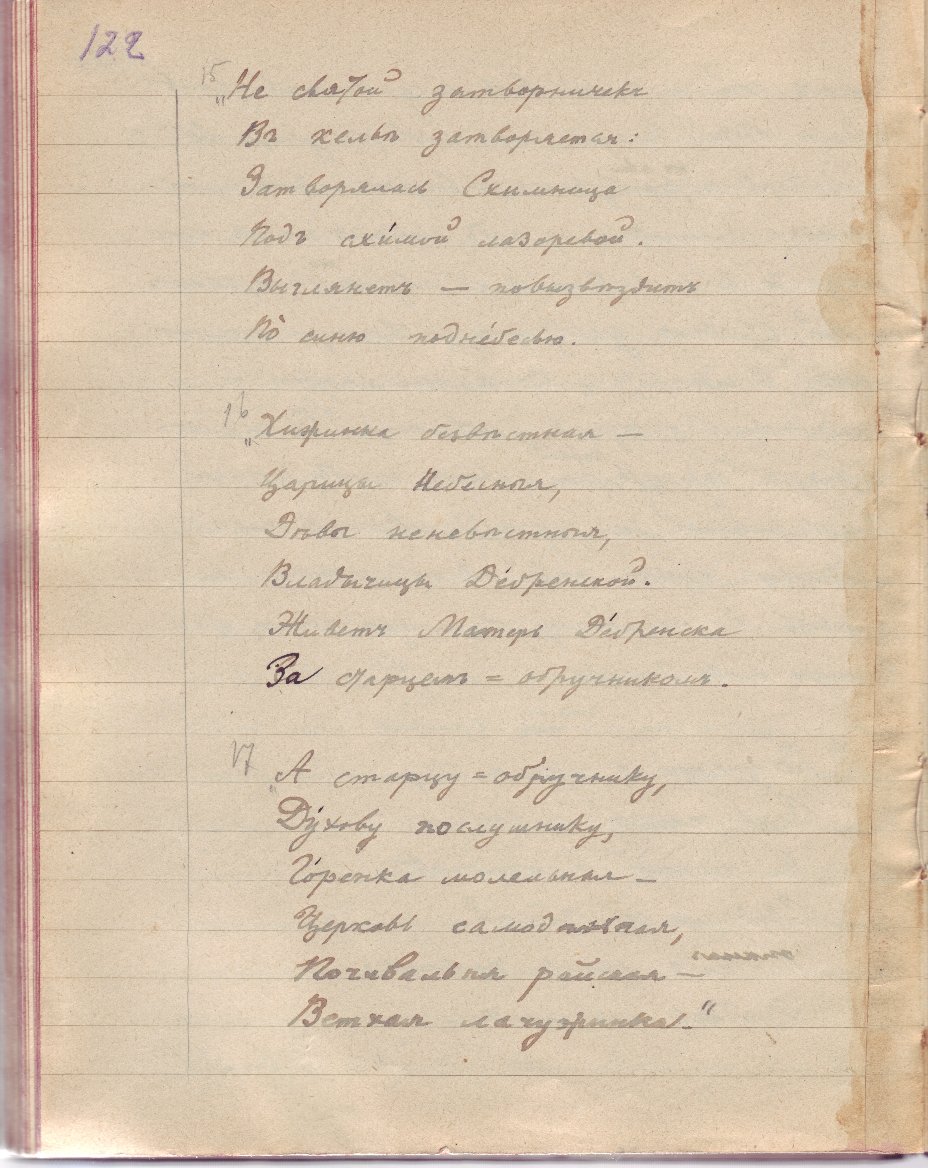 122
15
„Не святой затворничекъ
Въ кельѣ затворяется:
Затворялась Схимница
Подъ схи́мой лазоревой.
Выглянетъ — повызвѣздитъ
По̀ синю подне́бесью.
16
„Хижинка безвѣстная —
Царицы Небесныя,
Дѣвы неневѣстныя,
Владычицы Де́бренской.
Живетъ Матерь Де́бренска
За старцемъ = обручникомъ.
17
„А старцу = обручнику,
Ду́хову послушнику,
Го́ренка молельная —
Церковь самодѣльная,
Почивальня райская —
Ветхая лачужинка."